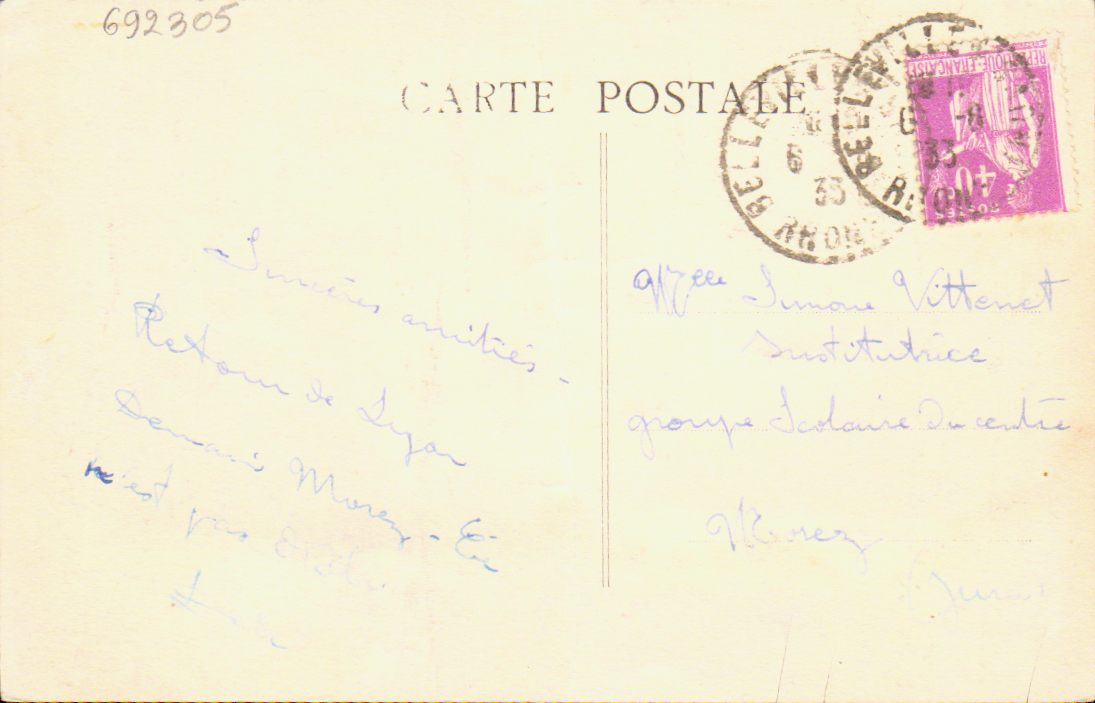 692305
CARTE POSTALE
BELLEVILLE
6
33
RHONE
BELLEVILLE
-6
33
RHONE
REPUBLIQUE-FRANÇAISE
40
Sincères amitiés -
Retour de
Demain Morez -
n'est pas
Melle Simone Vittenet
Institutrice
groupe Scolaire du centre
Morez
(Jura)